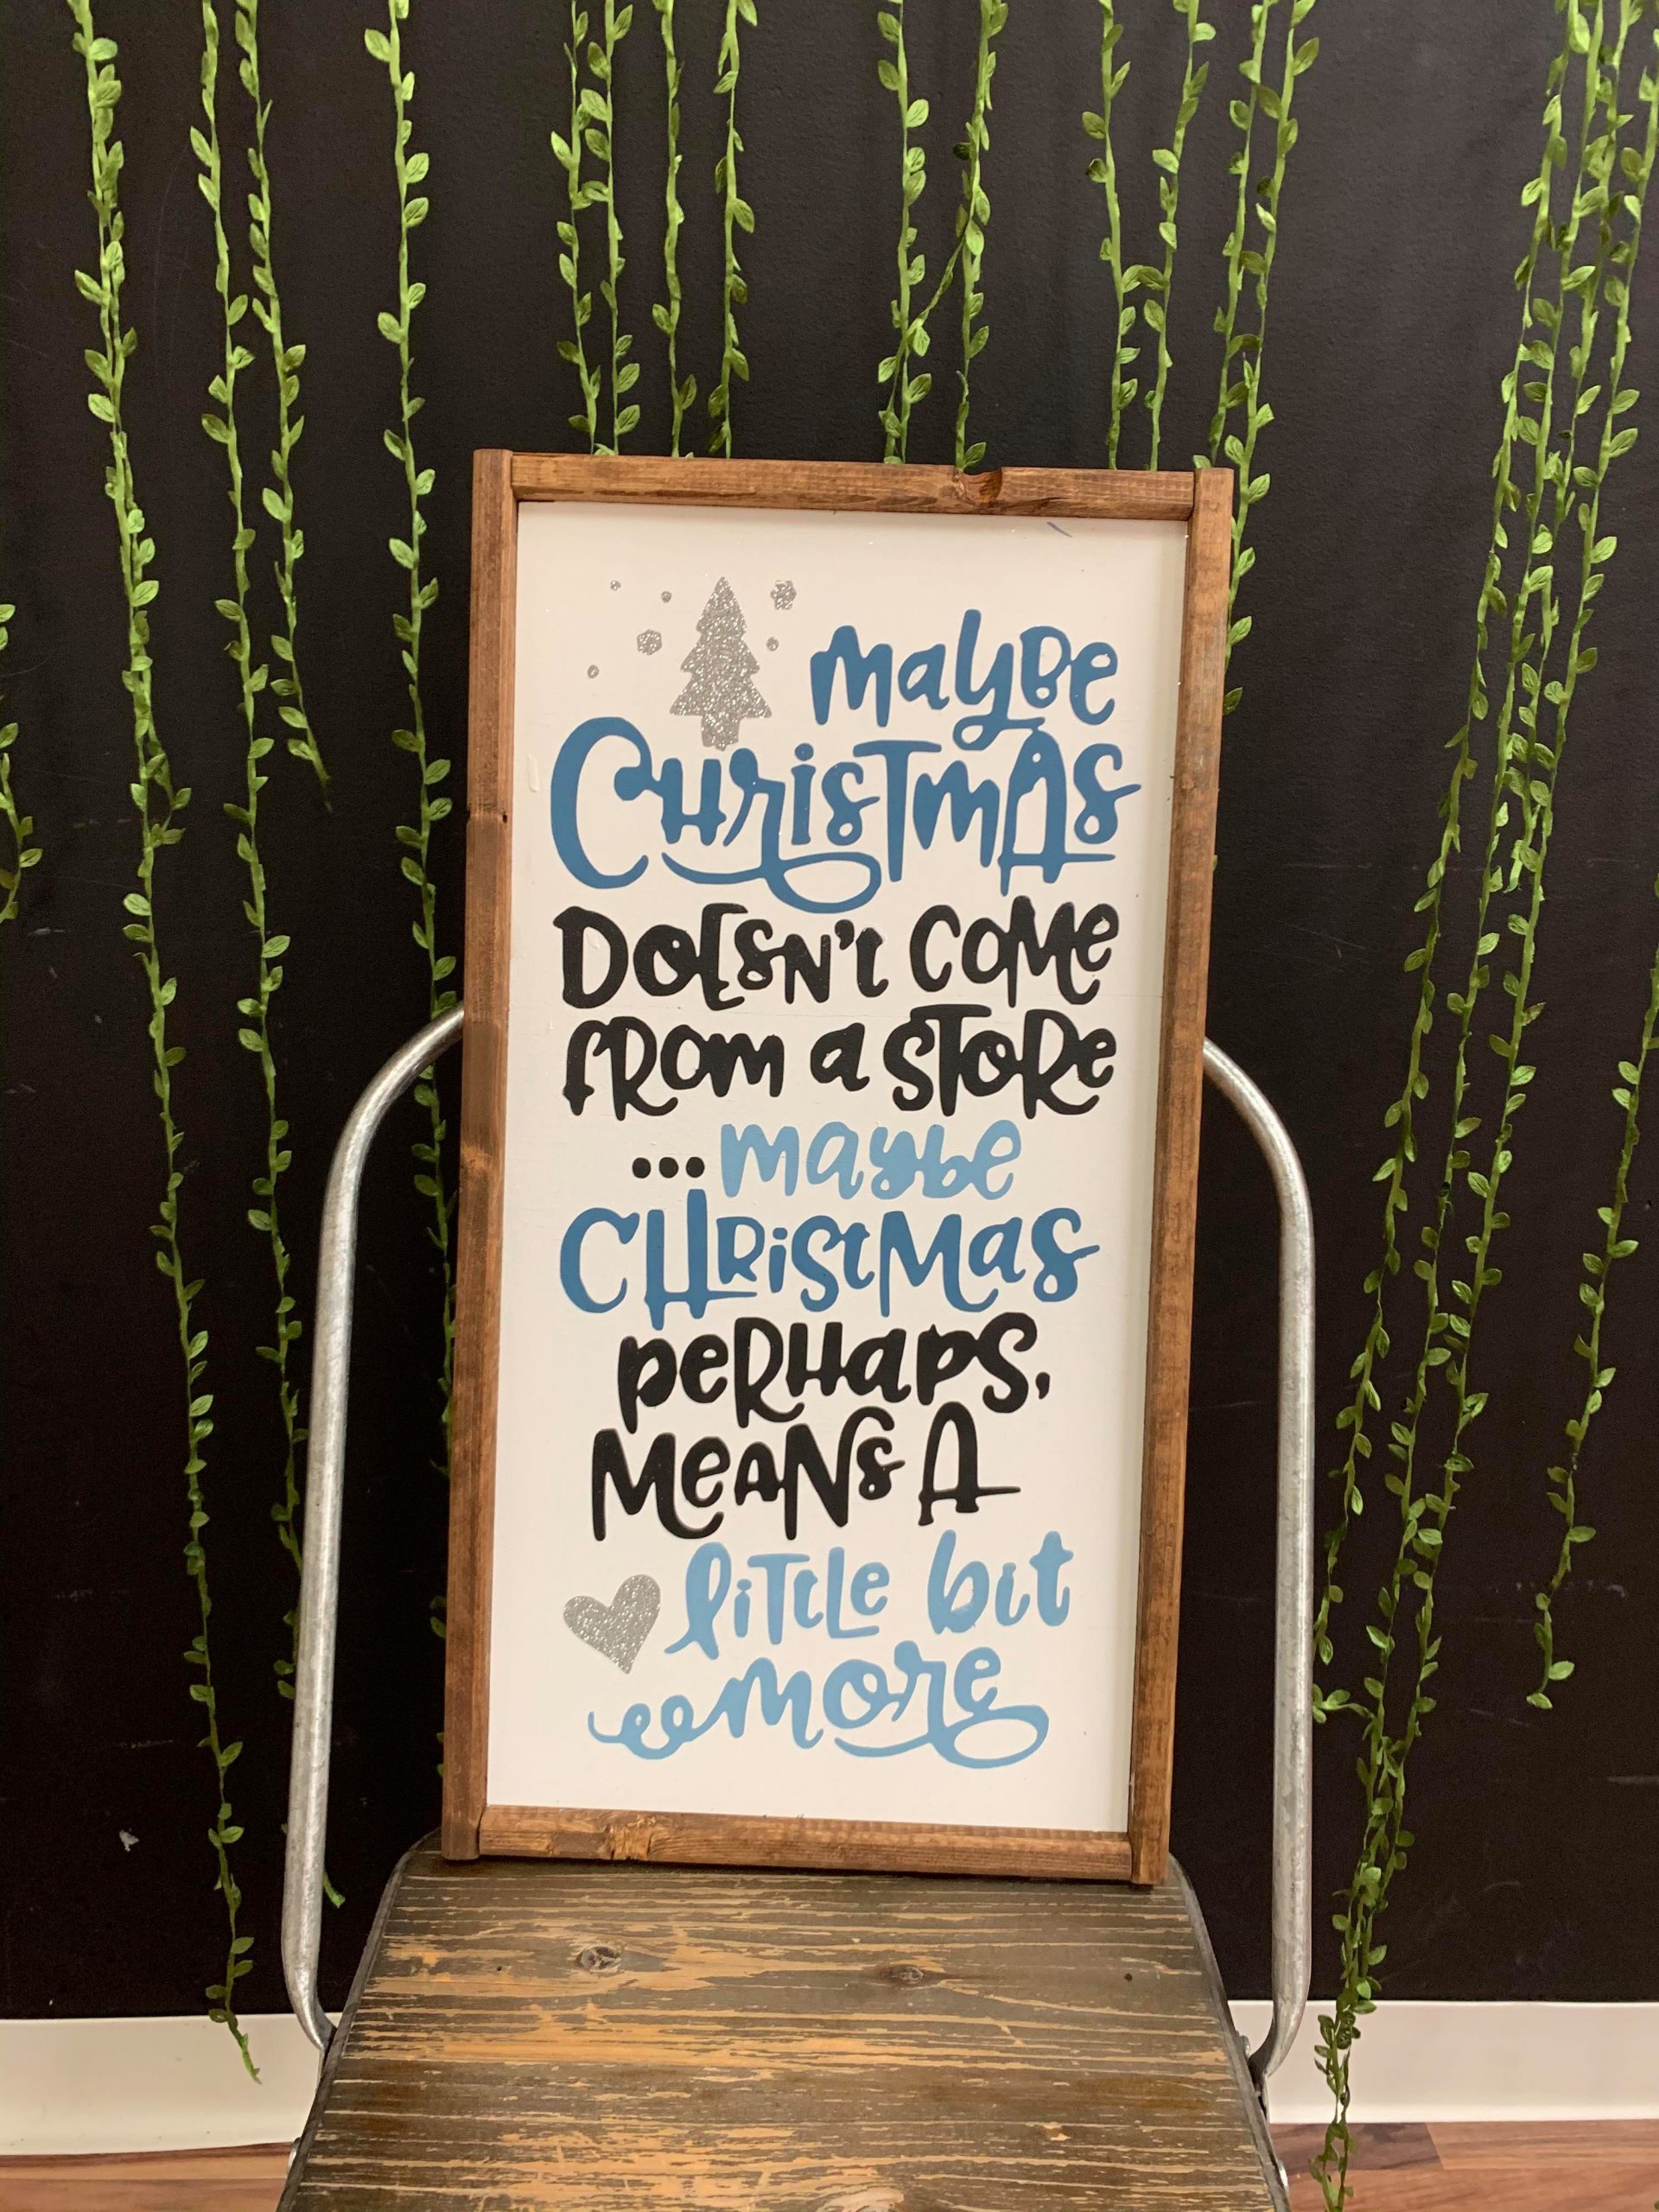 maybe
Christmas
Doesn't come
from a store
...maybe
Christmas
perhaps,
means a
little bit
more